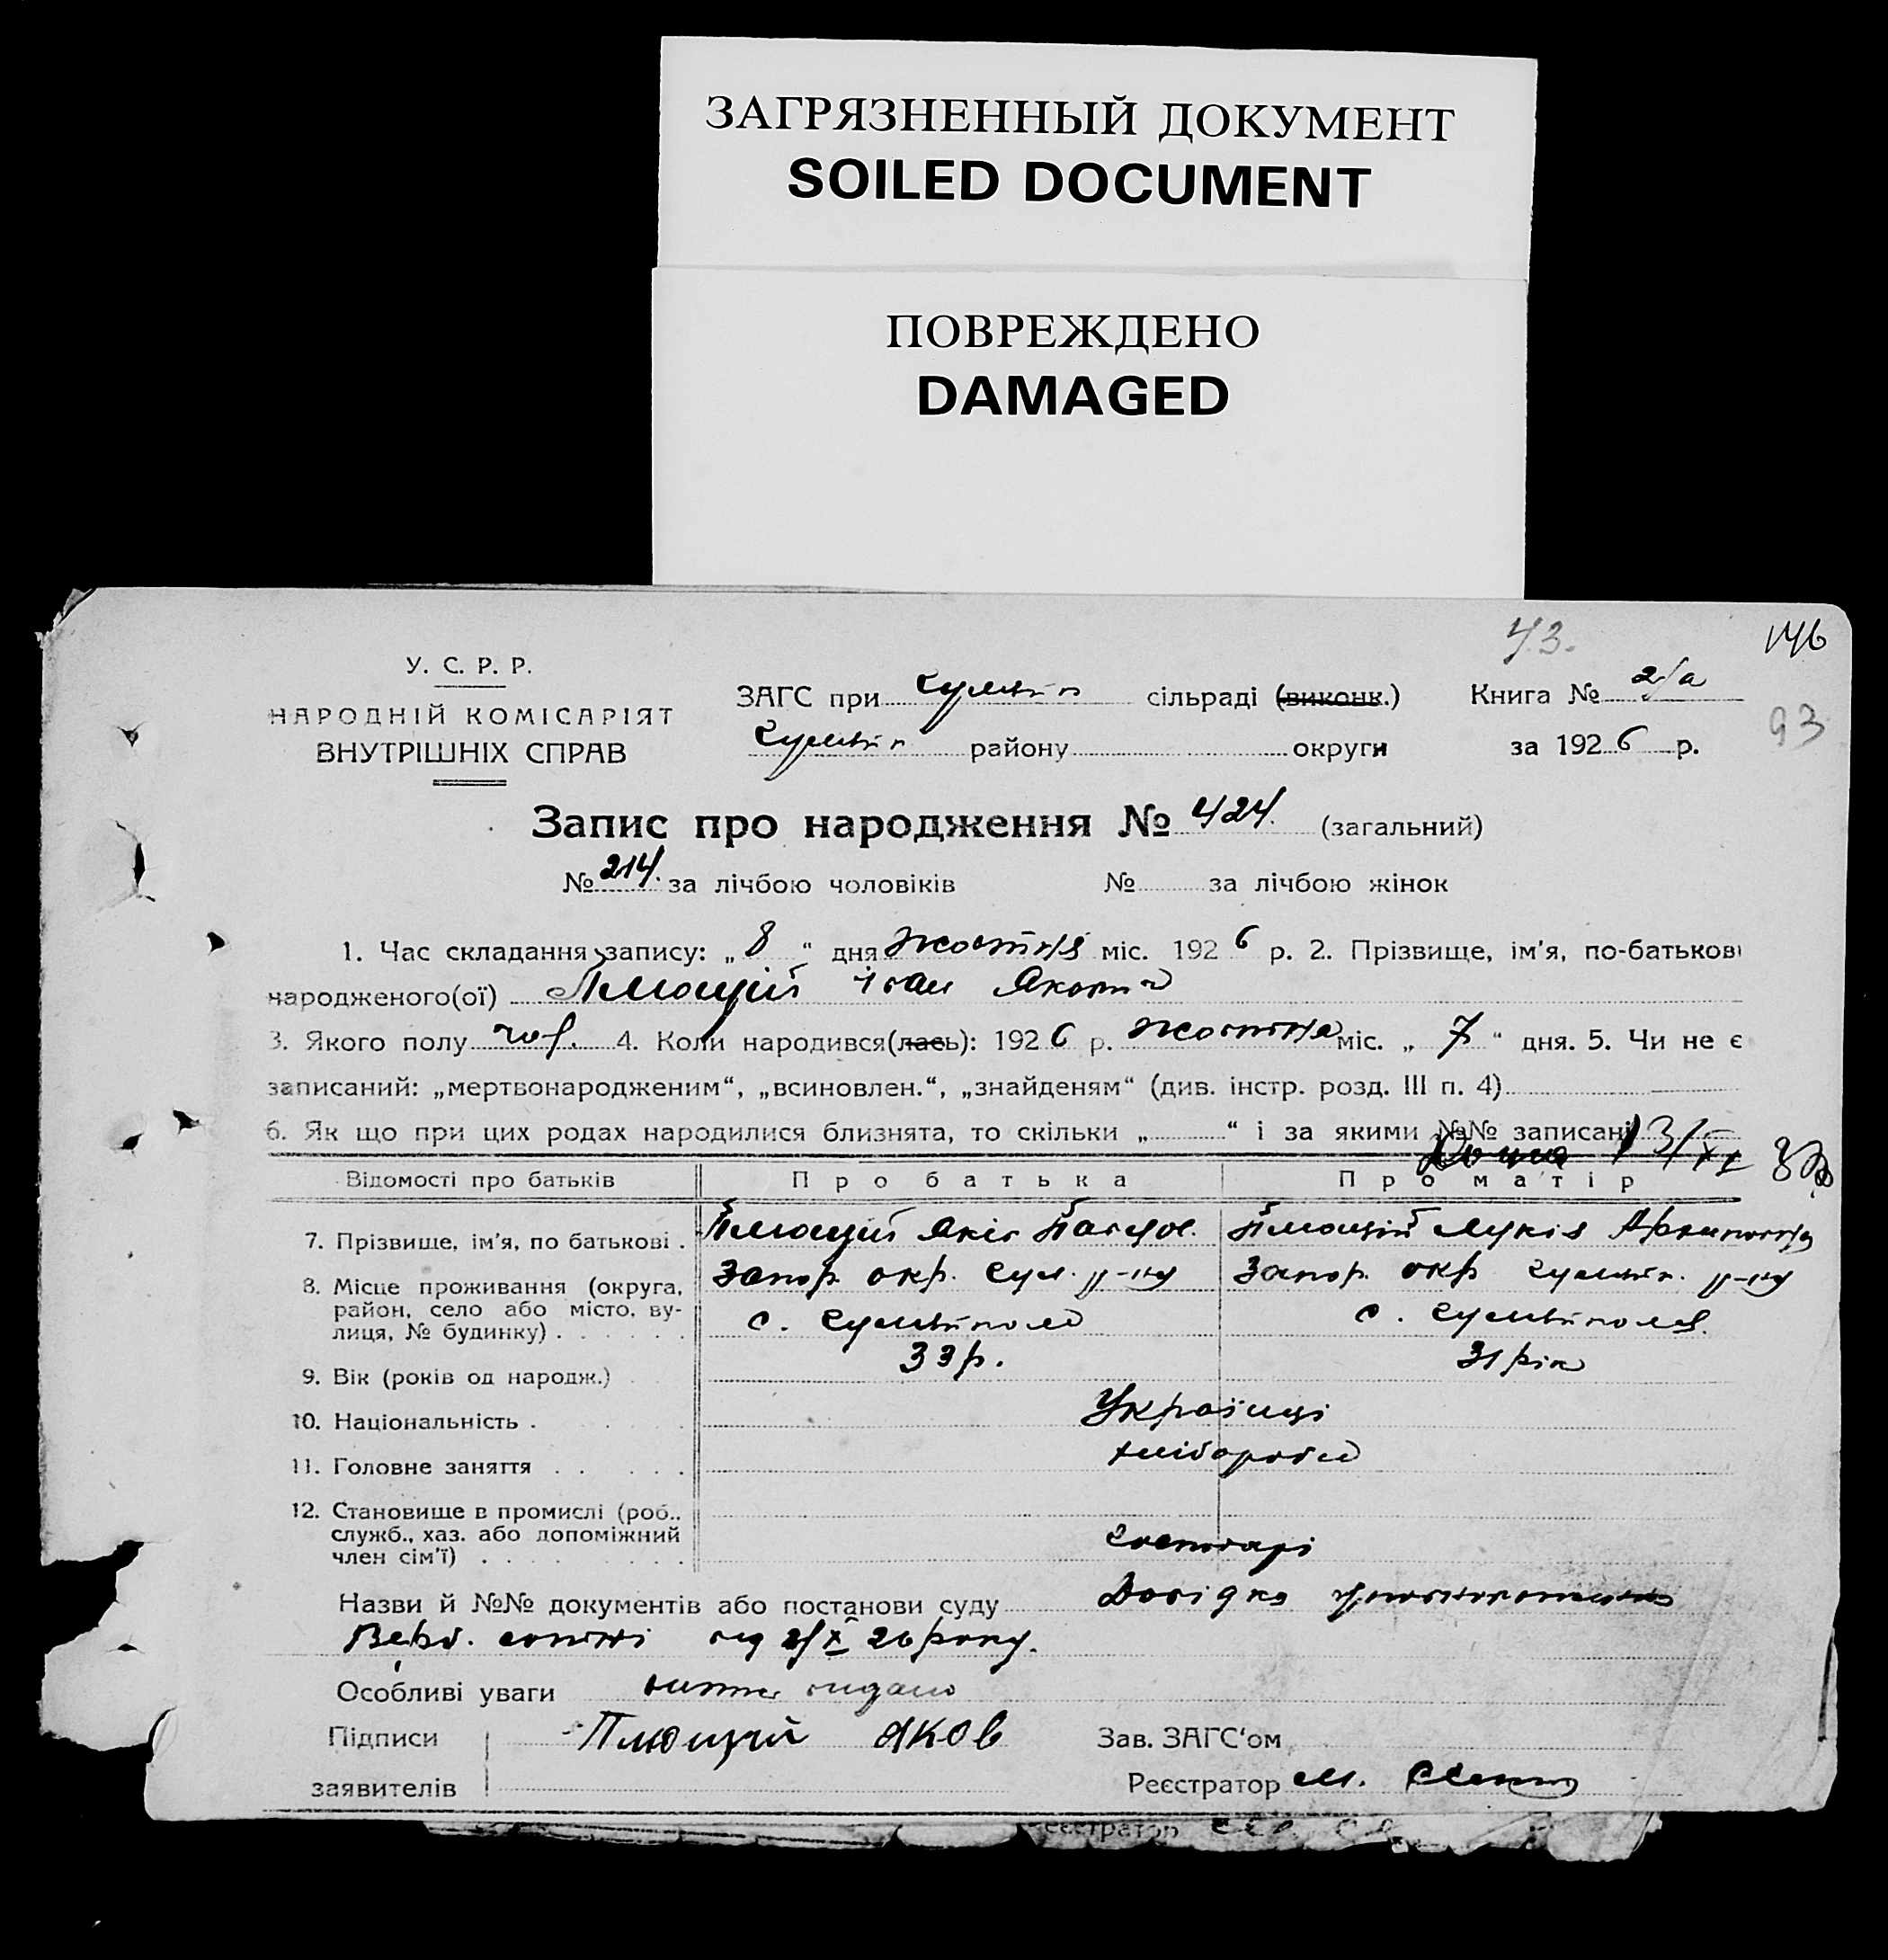 ЗАГРЯЗНЕННЫЙ ДОКУМЕНТ
SOILED DOCUMENT
ПОВРЕЖДЕНО
DAMAGED
43.
146
У. С. Р. Р.
НАРОДНІЙ КОМІСАРІЯТ
ВНУТРІШНІХ СПРАВ
ЗАГС при сільраді (виконк.) Книга № 2/а
93
району округи за 1926 р.
Запис про народження № 424. (загальний)
№ 214. за лічбою чоловіків № за лічбою жінок
1. Час складання запису: „ 8 “ дня жовтня міс. 1926 р. 2. Прізвище, ім'я, по-батькові
народженого(ої) Плющій Іван Якович
3. Якого полу чол. 4. Коли народився(лась): 1926 р. жовтня міс. „ 7 “ дня. 5. Чи не є
записаний: „мертвонародженим“, „всиновлен.“, „знайденям“ (див. інстр. розд. III п. 4)
6. Як що при цих родах народилися близнята, то скільки „ “ і за якими №№ записані
Відомості про батьків Про батька Про матір
7. Прізвище, ім'я, по батькові . Плющій Яків Плющій Лукія
8. Місце проживання (округа, район, село або місто, вулиця, № будинку) . . . . . . Запор. окр. р-ну Запор. окр р-ну
с. с.
9. Вік (років од народж.) 33 р. 31 рік
10. Національність . Українці
11. Головне заняття . . . . . хлібороби
12. Становище в промислі (роб., служб., хаз. або допоміжний член сім'ї) . . . . . . . господарі
Назви й №№ документів або постанови суду Довідка
од 2/X 26 року.
Особливі уваги видано
Підписи Плющий Яков Зав. ЗАГС'ом
заявителів Реєстратор М.
Реєстратор